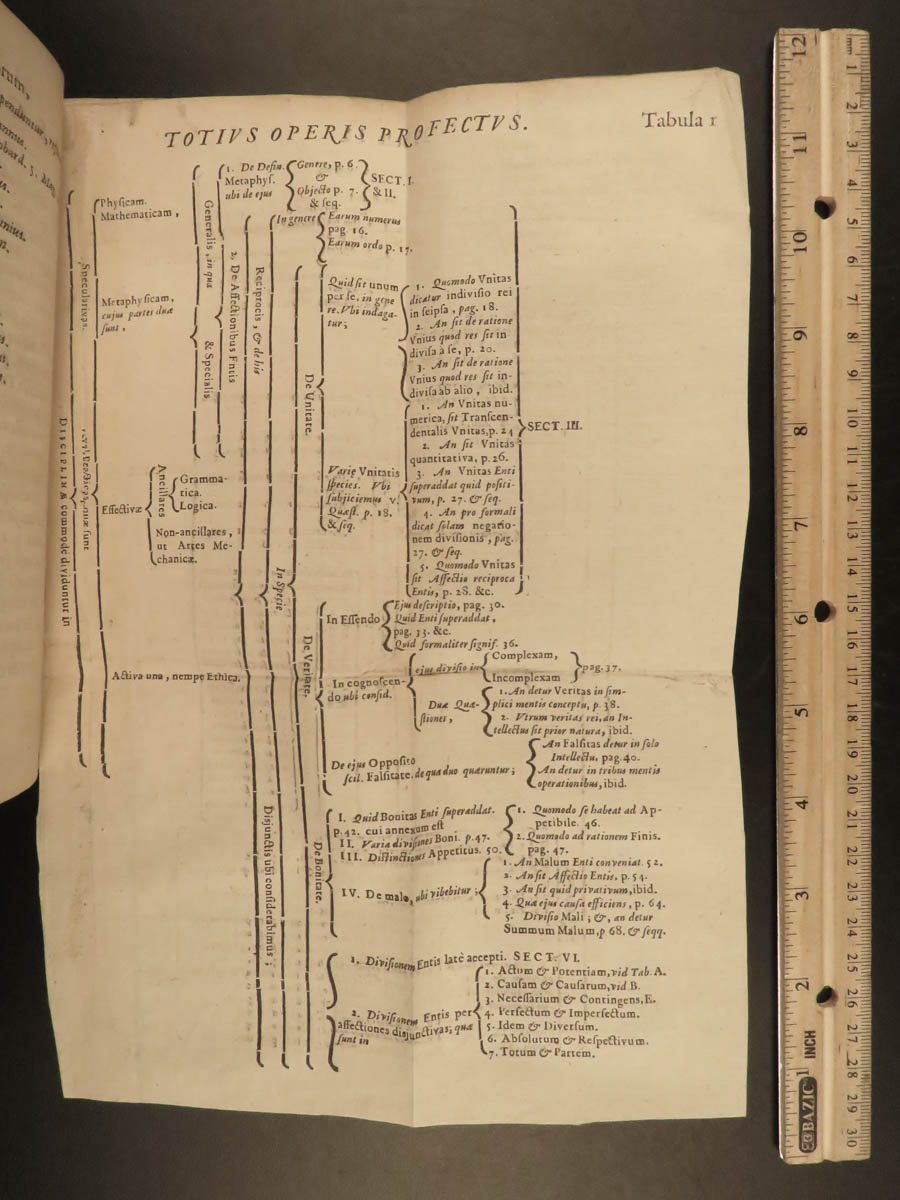 TOTIVS OPERIS PROFECTVS.
Tabula 1
DISCIPLINÆ commode dividuntur in
Speculativas.
Physicam.
Mathematicam,
Metaphysicam,
cujus partes duæ
sunt,
Generalis, in qua
& Specialis.
1. De Defin.
Metaphys.
ubi de ejus
Genere, p. 6.
&
Objecto p. 7.
& seq.
SECT. I.
& II.
2. De Affectionibus Entis
Reciprocis, & de his
In genere
Earum numerus
pag. 16.
Earum ordo p. 17.
In Specie
De Unitate.
Quid sit unum
per se. in gene
re. Vbi indaga-
tur;
1. Quomodo Vnitas
dicatur indivisio rei
in seipsa, pag. 18.
2. An sit de ratione
Vnius quod res sit in
divisa à se, p. 20.
3. An sit de ratione
Vnius quod res sit in-
divisa ab alio, ibid.
Varie Vnitatis
species. Vbi
subjiciemus v.
Quæst. p. 18.
& seq.
1. An Vnitas nu-
merica, sit Transcen-
dentalis Vnitas, p. 24
2. An sit Vnitas
quantitativa, p. 26.
3. An Vnitas Enti
superaddat quid positi-
vum, p. 27. & seq.
4. An pro formali
dicat solam negatio-
nem divisionis, pag.
27. & seq.
5. Quomodo Vnitas
sit Affectio reciproca
Entis, p. 28. &c.
SECT. III.
De Veritate.
In Essendo
Ejus descriptio, pag. 30.
Quid Enti superaddat,
pag. 33. &c.
Quid formaliter signif. 36.
In cognoscen-
do ubi consid.
ejus divisio in
Complexam,
Incomplexam
pag. 37.
Duæ Quæ-
stiones,
1. An detur Veritas in sim-
plici mentis conceptu, p. 38.
2. Vtrum veritas rei, an In-
tellectus sit prior natura, ibid.
De ejus Opposito
scil. Falsitate. de qua duo quæruntur;
An Falsitas detur in solo
Intellectu, pag. 40.
An detur in tribus mentis
operationibus, ibid.
De Bonitate.
I. Quid Bonitas Enti superaddat.
p. 42. cui annexum est
II. Varia divisiones Boni. p. 47.
III. Distinctiones Appetitus. 50.
1. Quomodo se habeat ad Ap-
petibile. 46.
2. Quomodo ad rationem Finis.
pag. 47.
IV. De malo, ubi vibebitur;
1. An Malum Enti conveniat. 52.
2. An sit Affectio Entis, p. 54.
3. An sit quid privativum, ibid.
4. Quæ ejus causa efficiens, p. 64.
5. Divisio Mali; &, an detur
Summum Malum, p 68. & seqq.
Disjunctis ubi considerabimus;
1. Divisionem Entis latè accepti. SECT. VI.
2. Divisionem Entis per
affectiones disjunctivas; quæ
sunt in
1. Actum & Potentiam, vid Tab. A.
2. Causam & Causarum, vid B.
3. Necessarium & Contingens, E.
4. Perfectum & Imperfectum.
5. Idem & Diversum.
6. Absolutum & Respectivum.
7. Totum & Partem.
quæ sunt
Effectivæ
Ancillares
Gramma-
tica.
Logica.
Non-ancillares,
ut Artes Me-
chanicæ.
Activa una, nempe Ethica.
12
11
10
9
8
7
6
5
4
3
2
1
INCH
BAZIC
mm
1
2
3
4
5
6
7
8
9
10
11
12
13
14
15
16
17
18
19
20
21
22
23
24
25
26
27
28
29
30